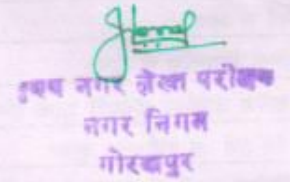 मुख्य नगर लेखा परीक्षक
नगर निगम
गोरखपुर